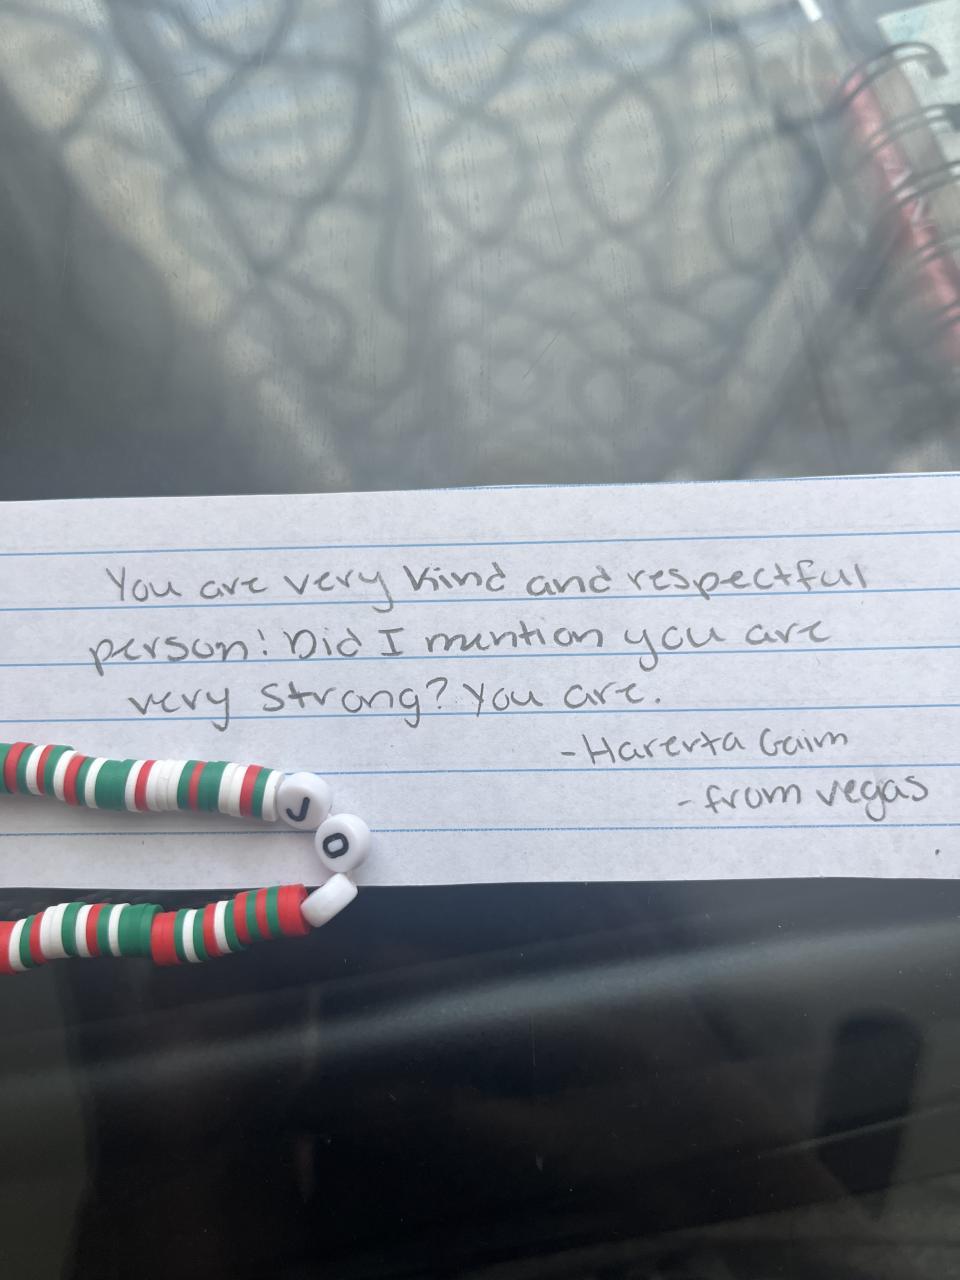 You are very kind and respectful
person! Did I mention you are
very strong? You are.
-Harerta Gaim
-from vegas
J
O